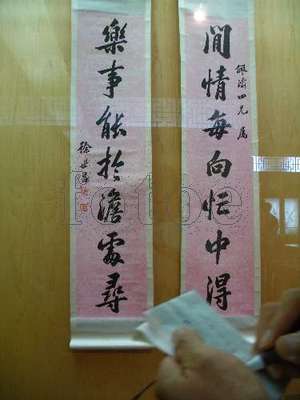 閒情每向忙中得
四兄 属
樂事能於澹處尋
徐世昌